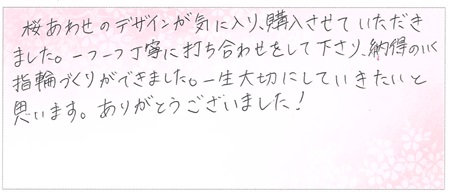 桜あわせのデザインが気に入り、購入させていただき
ました。一つ一つ丁寧に打ち合わせをして下さり、納得のいく
指輪づくりができました。一生大切にしていきたいと
思います。ありがとうございました!